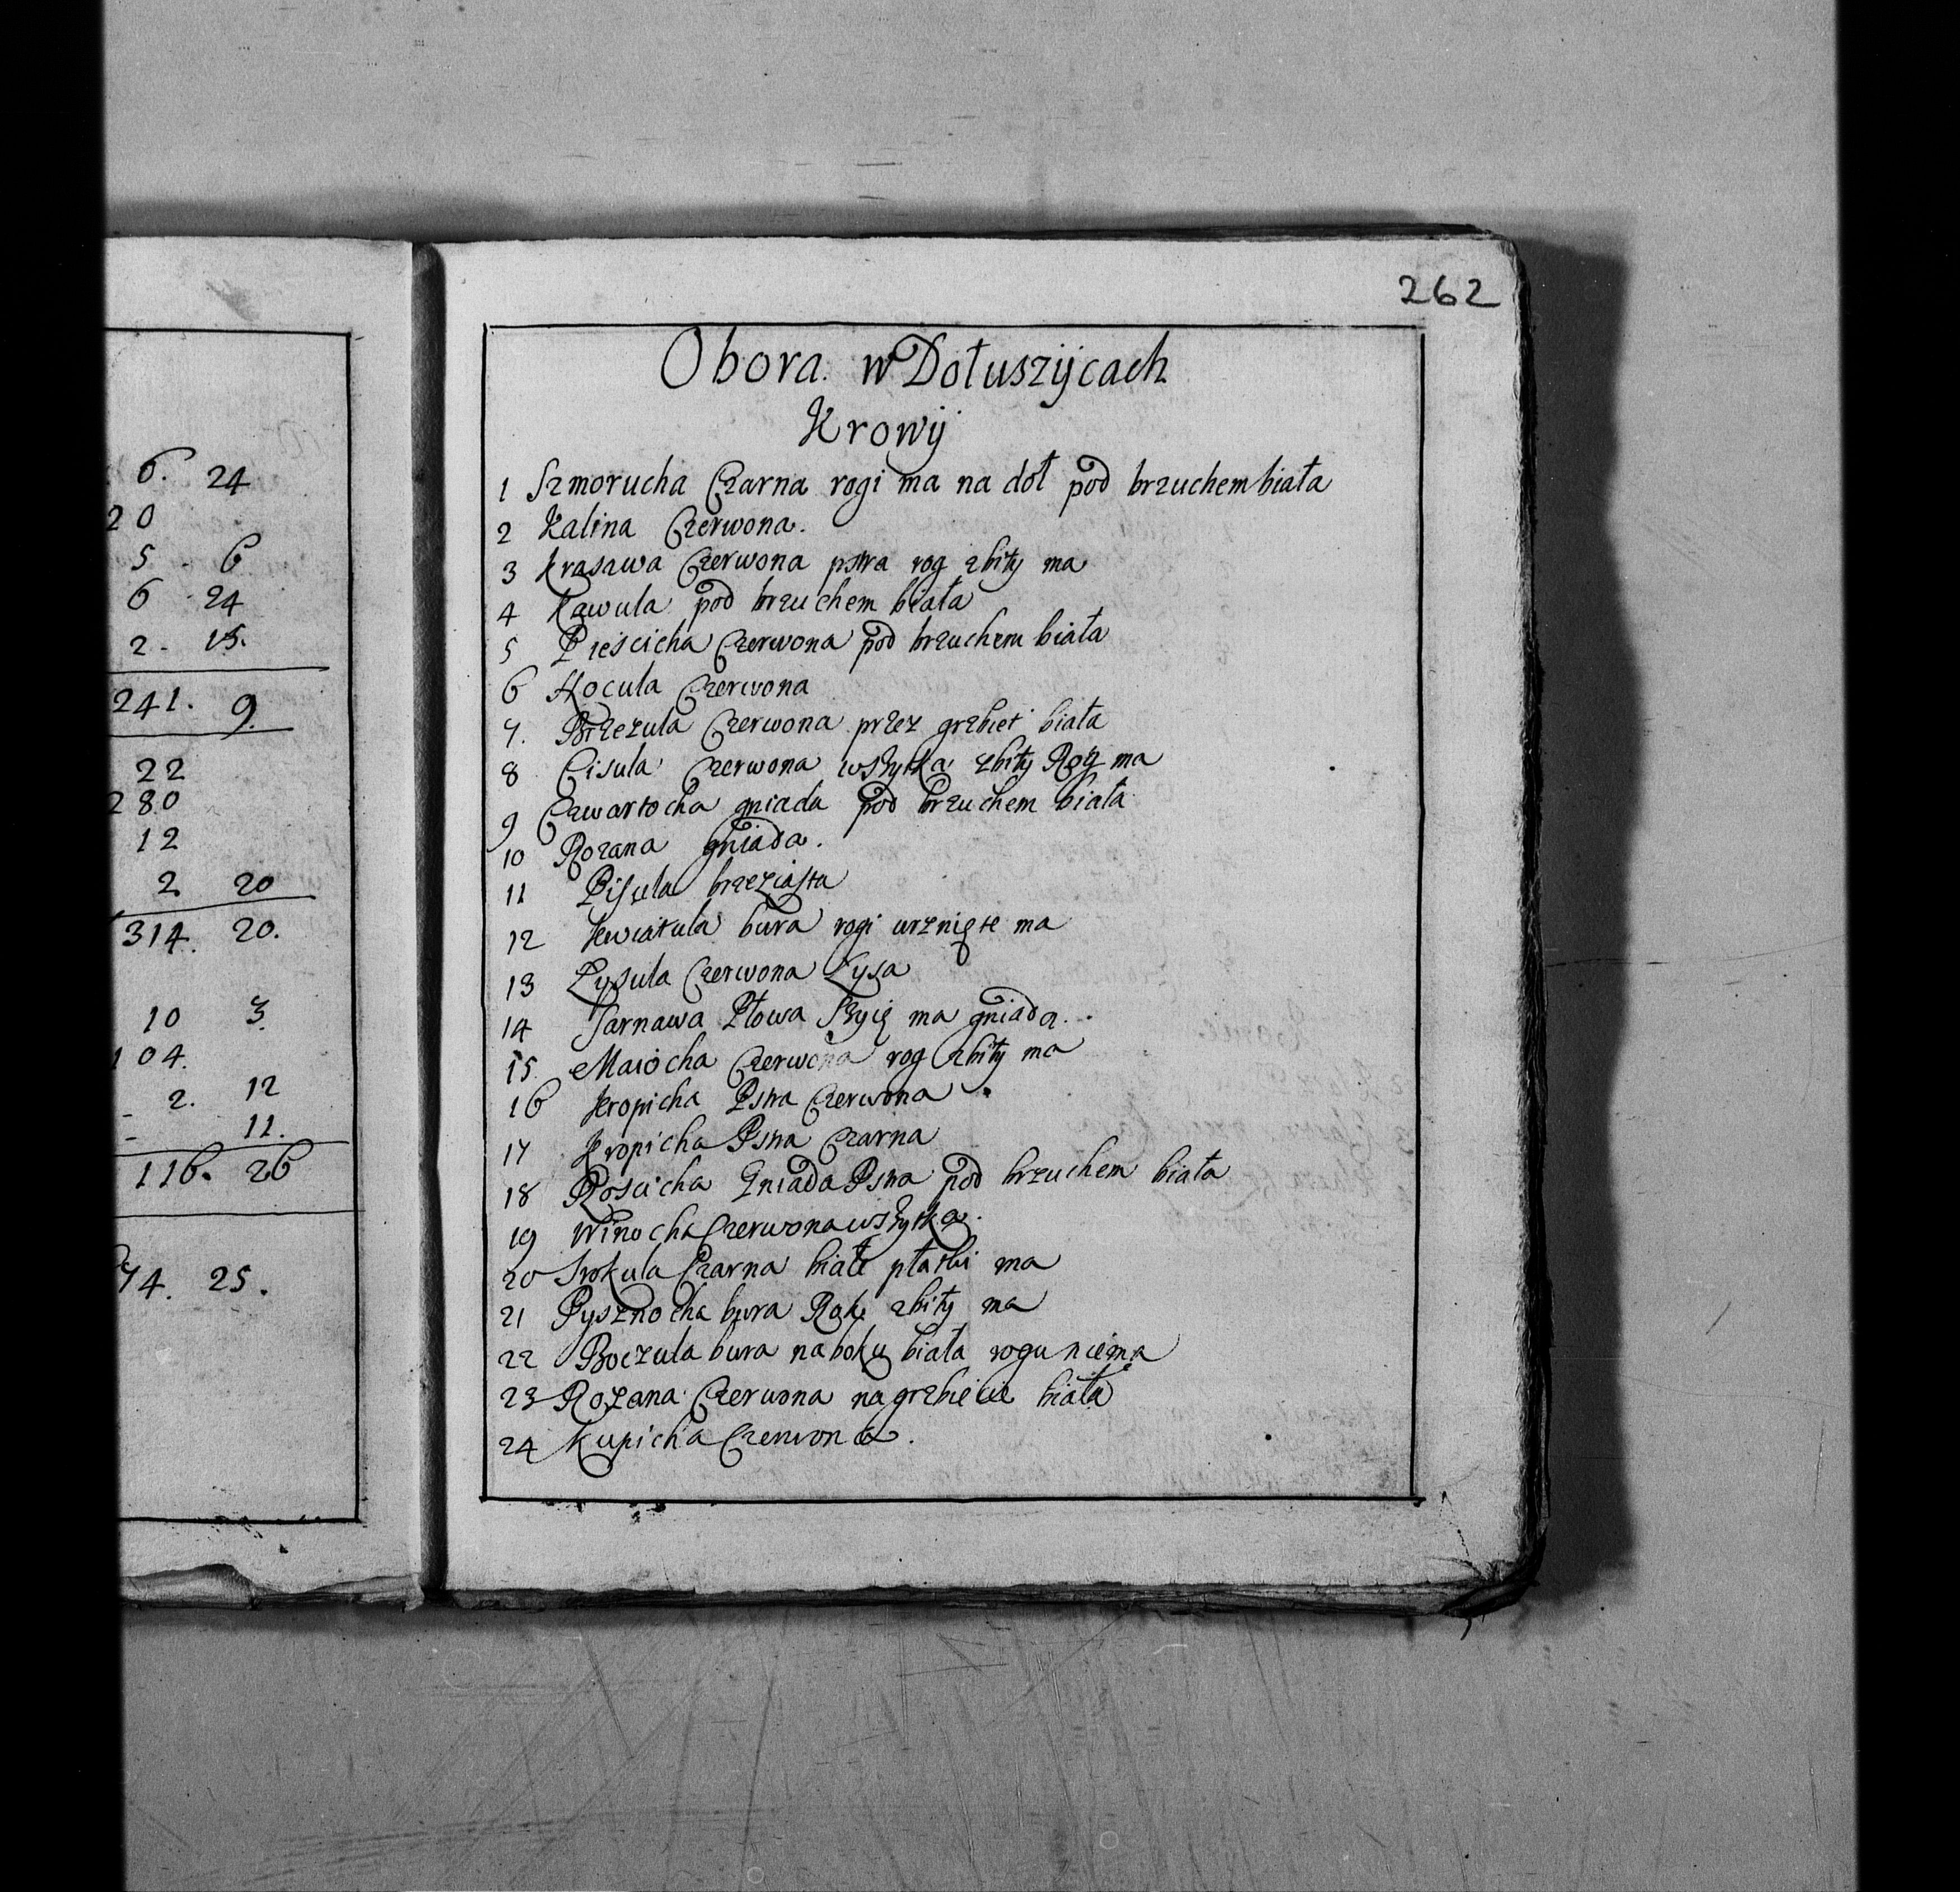 6. 24
20
5 6
6 24
2. 15.
241. 9.
22
280
12
2 20
314. 20.
10 3.
104.
2. 12
11.
116. 26
74. 25.
262
Obora w Dołuszijcach
Krowij
1 Szmorucha Czarna rogi ma na doł pod brzuchem biała
2 Kalina Czerwona.
3 Krasawa Czerwona pstra rog zbity ma
4 Kawula pod brzuchem biała
5 Piescicha Czerwona pod brzuchem biała
6 Hocula Czerwona
7. Brzezula Czerwona przez grzbiet biała
8 Cisula Czerwona wszytka zbity Rog ma
9 Czwartocha gniada pod brzuchem biała
10 Rozana gniada.
11 Pisula brzeziasta
12 Kwiatula bura rogi urznięte ma
13 Łysula Czerwona Łysa
14 Sarnawa Płowa Szyię ma gniadą.
15 Maiocha Czerwona rog zbity ma
16 Kropicha Pstra Czerwona
17 Kropicha Pstra Czarna
18 Roscicha Gniada Pstra pod brzuchem biała
19 Winocha Czerwona wszytka.
20 Srokula Czarna białe płatki ma
21 Pysznocha bura Rok zbity ma
22 Boczula bura na boku biała rogu niema
23 Rozana Czerwona na grzbiecie biała
24 Kupicha Czerwona.